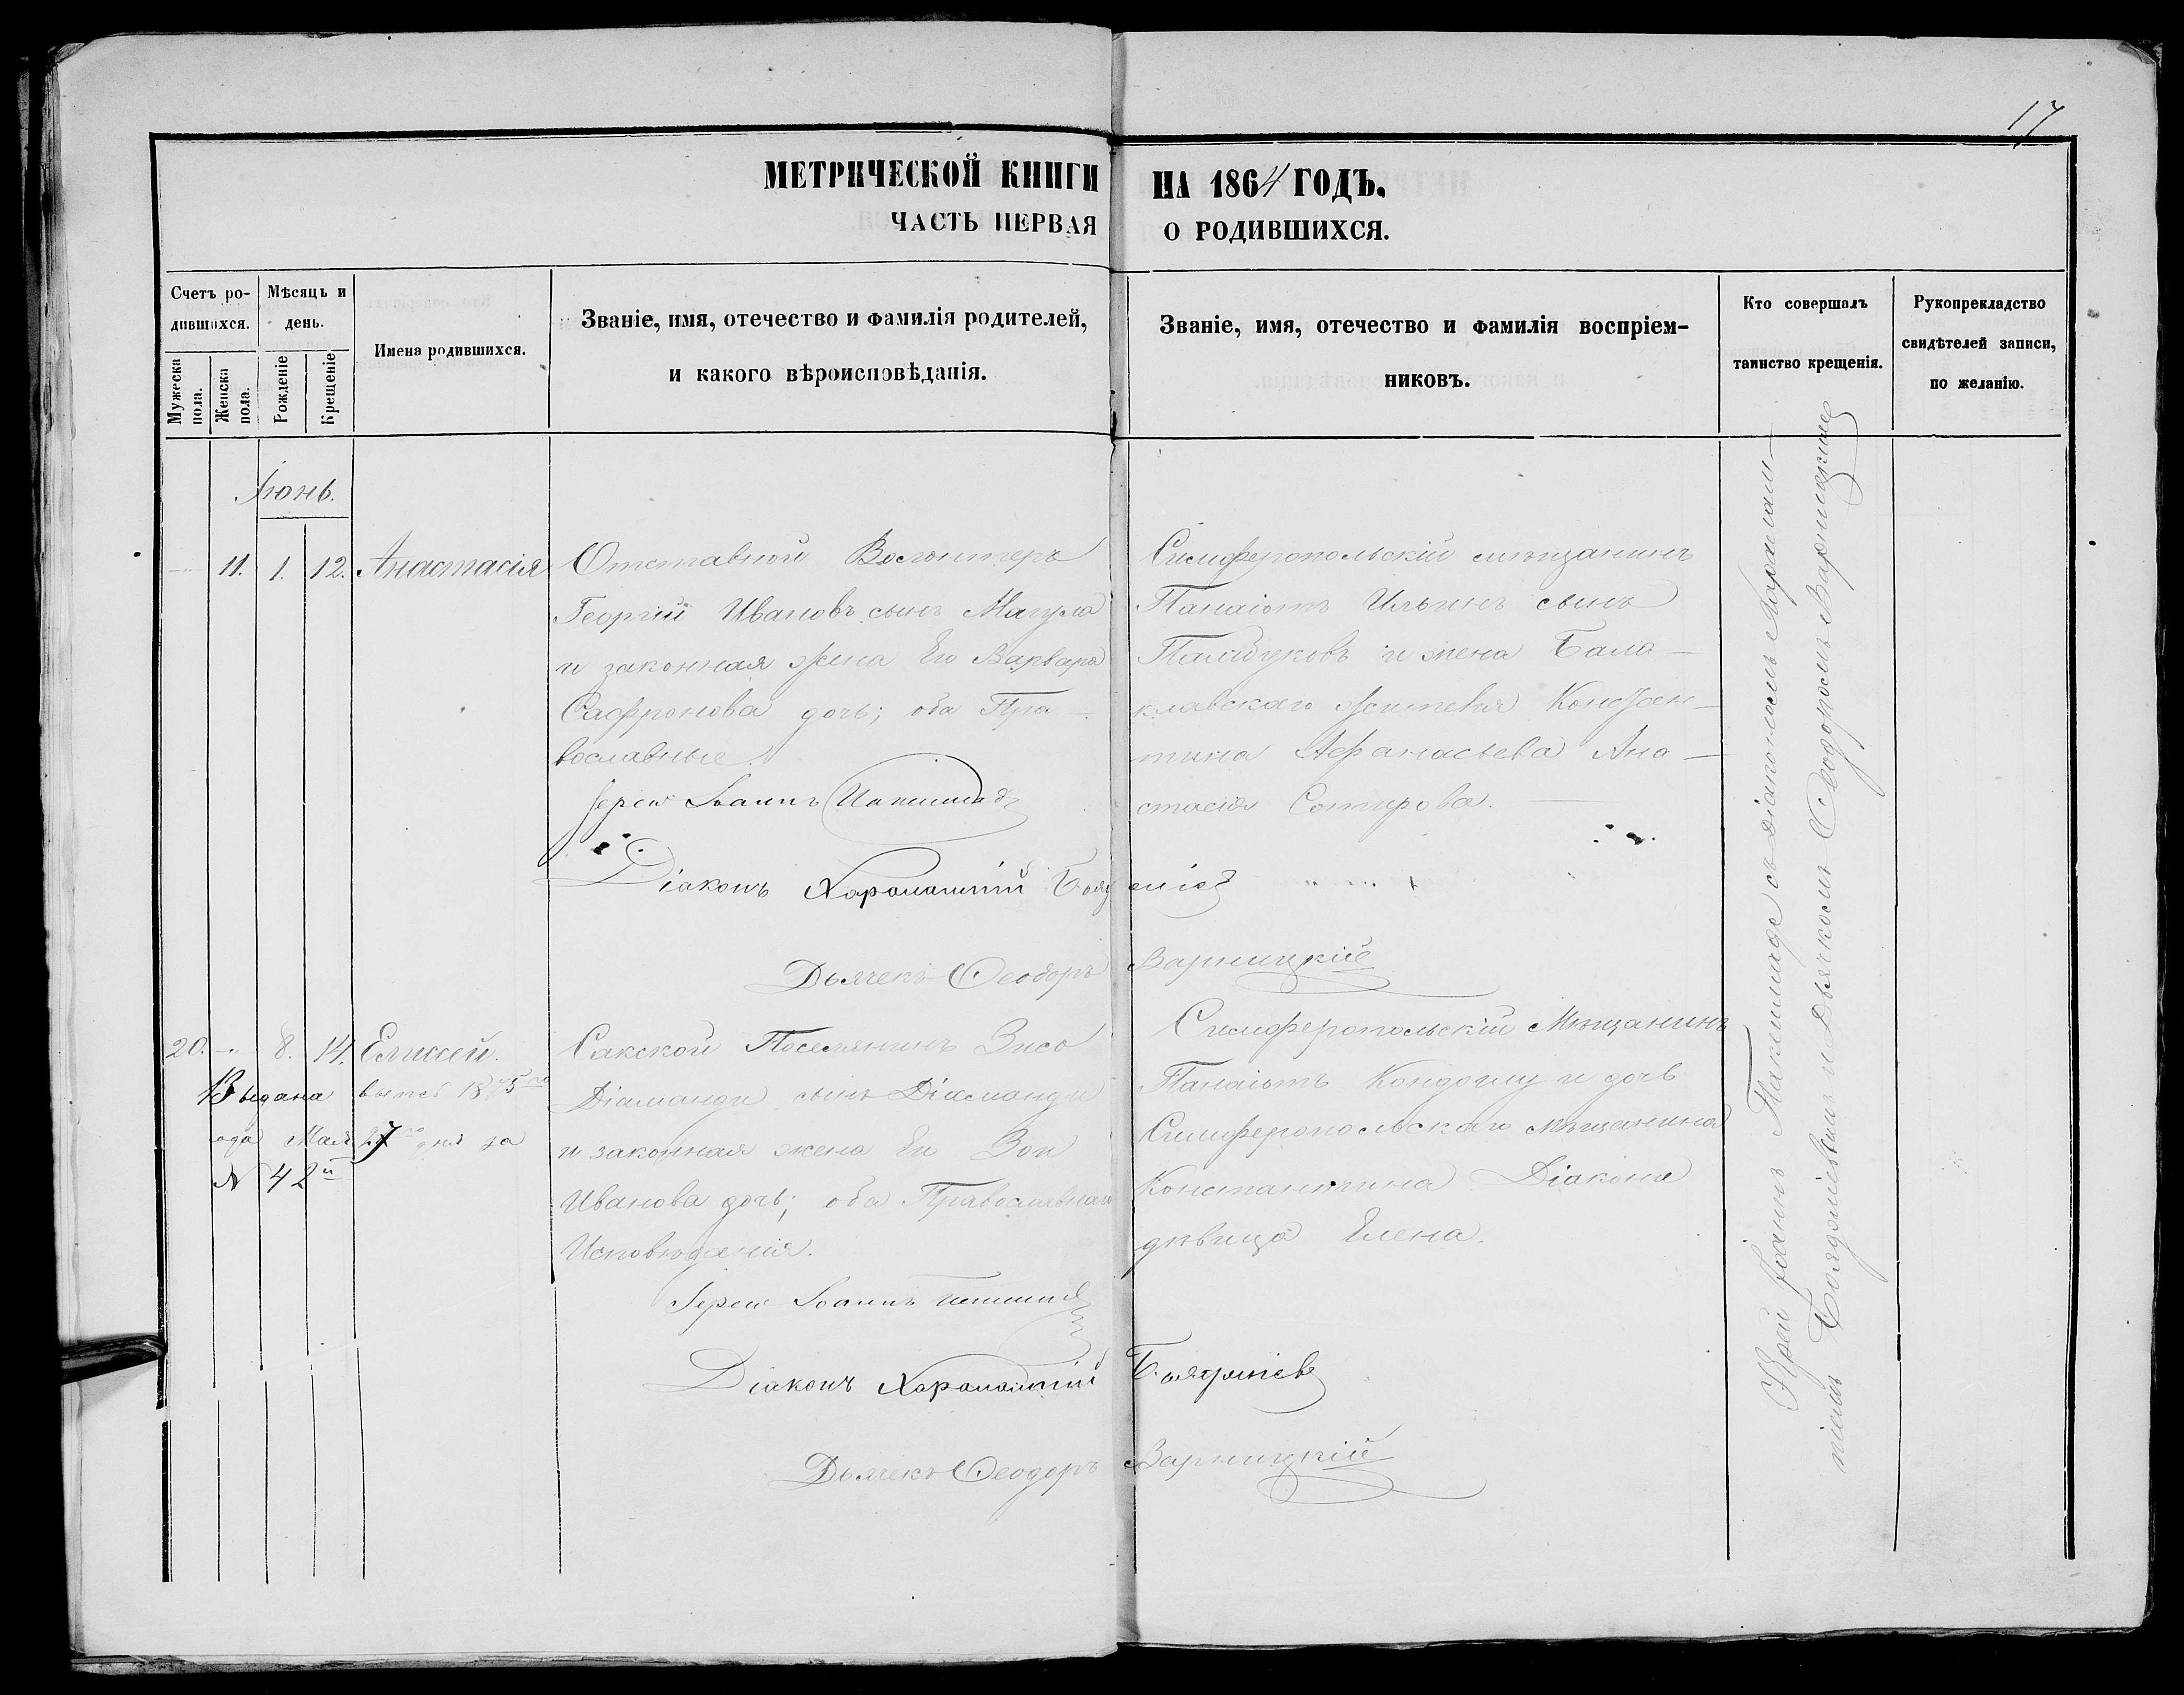 17
МЕТРИЧЕСКОЙ КНИГИ НА 1864 ГОДЪ.
ЧАСТЬ ПЕРВАЯ О РОДИВШИХСЯ.
Счетъ родившихся.
Мужеска пола.
Женска пола.
Мѣсяцъ и день.
Рожденіе
Крещеніе
Имена родившихся.
Званіе, имя, отечество и фамилія родителей,
и какого вѣроисповѣданія.
Званіе, имя, отечество и фамилія воспріем-
никовъ.
Кто совершалъ
таинство крещенія.
Рукоприкладство
свидѣтелей записи,
по желанію.
Іюнь.
11. 1. 12. Анастасія
Отставной Волонтеръ
Георгій Ивановъ сынъ Магула
и законная жена Его Варвара
Сафронова дочь; оба Пра-
вославные.
Іерей Іоаннъ
Діаконъ Харалампій
Дьячекъ Ѳеодоръ Варницкій
Симферопольскій мѣщанинъ
Панаіотъ Ильинъ сынъ
Памбуковъ и жена Бала-
клавскаго жителя Констан-
тина Афанасьева Ана-
стасія Сотирова.
20. - 8. 14. Елисей.
Выдана выпсь 1875 го
года Мая 27 го дня за
№ 42 й
Сакской Поселянинъ
Діаманди сынъ Діаманди
и законная жена Его Зои
Иванова дочь; оба Православнаго
Исповѣданія.
Іерей Іоаннъ
Діаконъ Харалампій
Дьячекъ Ѳеодоръ Варницкій
Симферопольскій Мѣщанинъ
Панаіотъ Кондоглу и дочь
Симферопольскаго мѣщанина
Константина Діакона
дѣвица Елена.
Іерей Іоаннъ съ Діакономъ Харалам-
піемъ и Дьячкомъ Ѳеодоромъ Варницкимъ